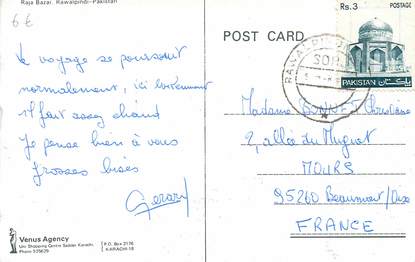 6€
Raja Bazar, Rawalpindi-Pakistan
Le voyage se poursuit
normalement, ici
il fait assez chaud
Je pense bien à vous
Grosses bises
Gérard
Venus Agency
Uni Shopping Centre Saddar, Karachi.
Phone 525629
P.O. Box 2176
KARACHI-18
POST CARD
Rs. 3 POSTAGE
PAKISTAN پاکستان
Madame BONNET Christiane
2, allée du Muguet
MOURS
95260 Beaumont/Oise
FRANCE